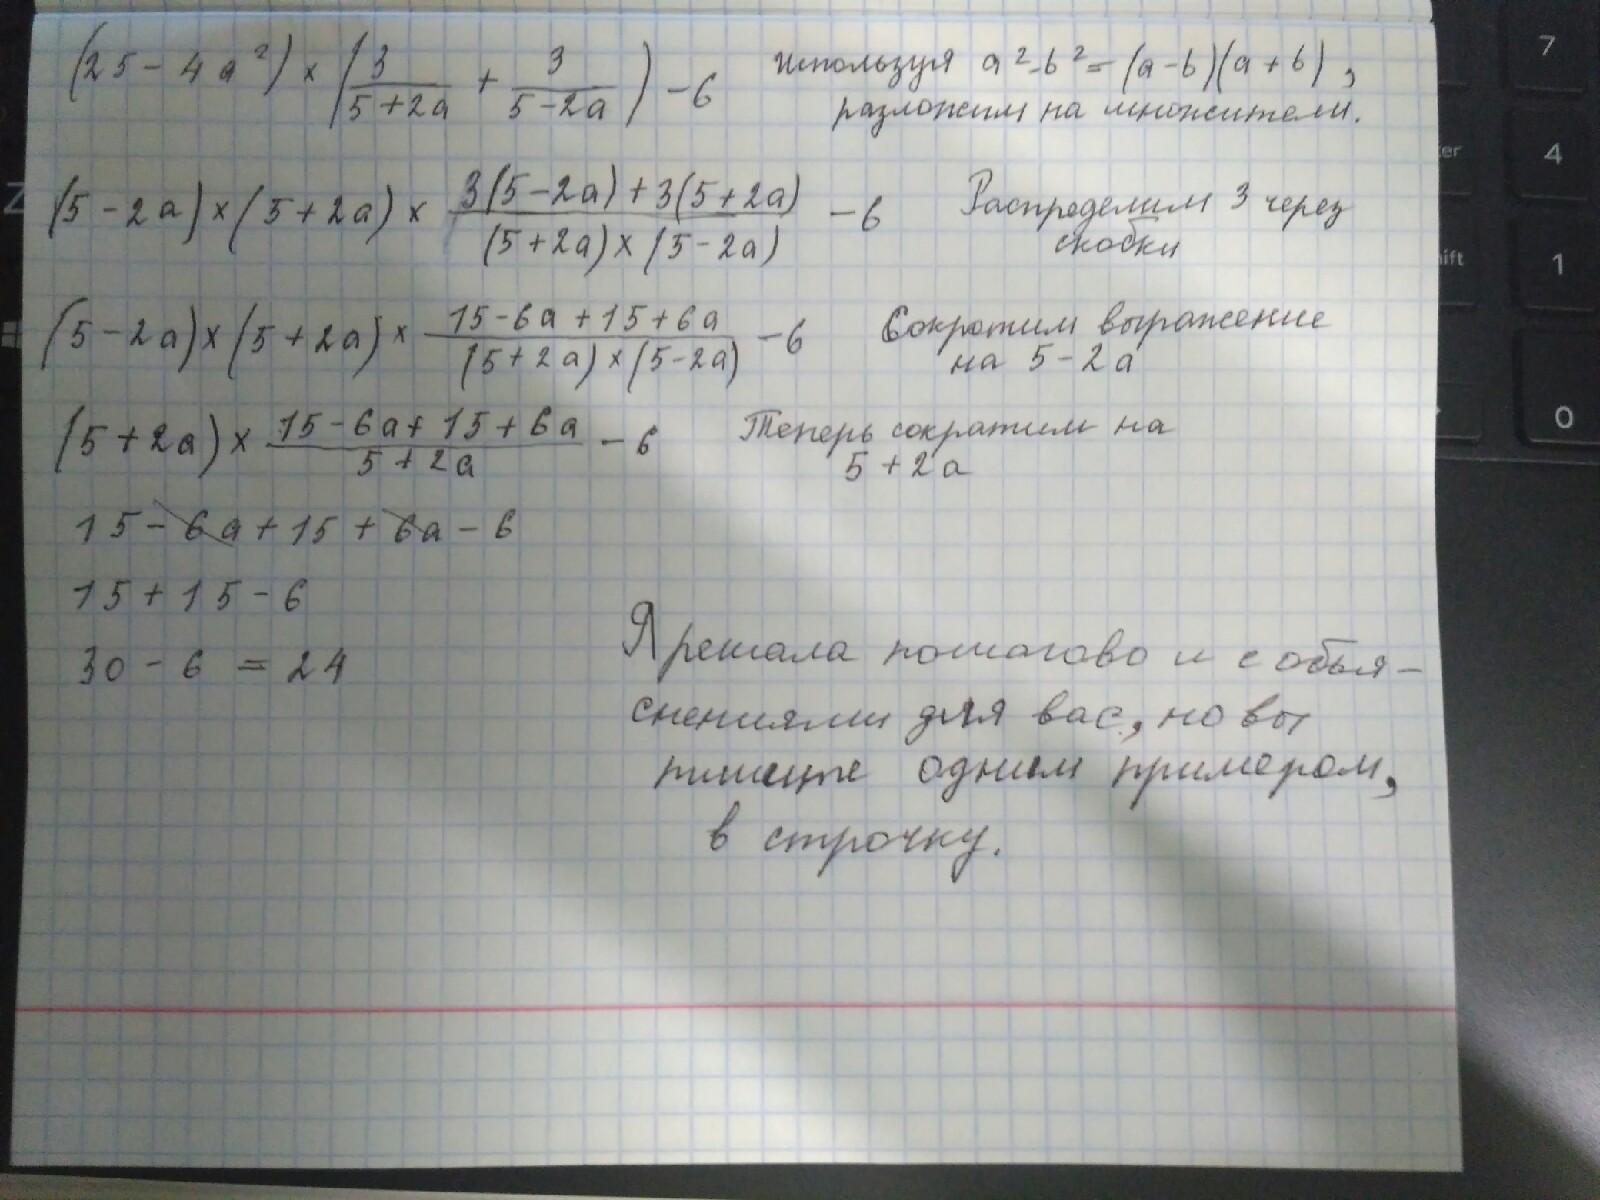 (25 - 4a²) × (3/(5+2a) + 3/(5-2a)) - 6 Используя a²-b²=(a-b)(a+b),
разложим на множители.
(5-2a)×(5+2a)× (3(5-2a)+3(5+2a))/((5+2a)×(5-2a)) - 6 Распределим 3 через
скобки
(5-2a)×(5+2a)× (15-6a+15+6a)/((5+2a)×(5-2a)) - 6 Сократим выражение
на 5-2a
(5+2a)× (15-6a+15+6a)/(5+2a) - 6 Теперь сократим на
5+2a
15-6a+15+6a-6
15+15-6
30-6=24
Я решала пошагово и с объя-
снениями для вас, но вы
пишите одним примером,
в строчку.
7
4
1
0